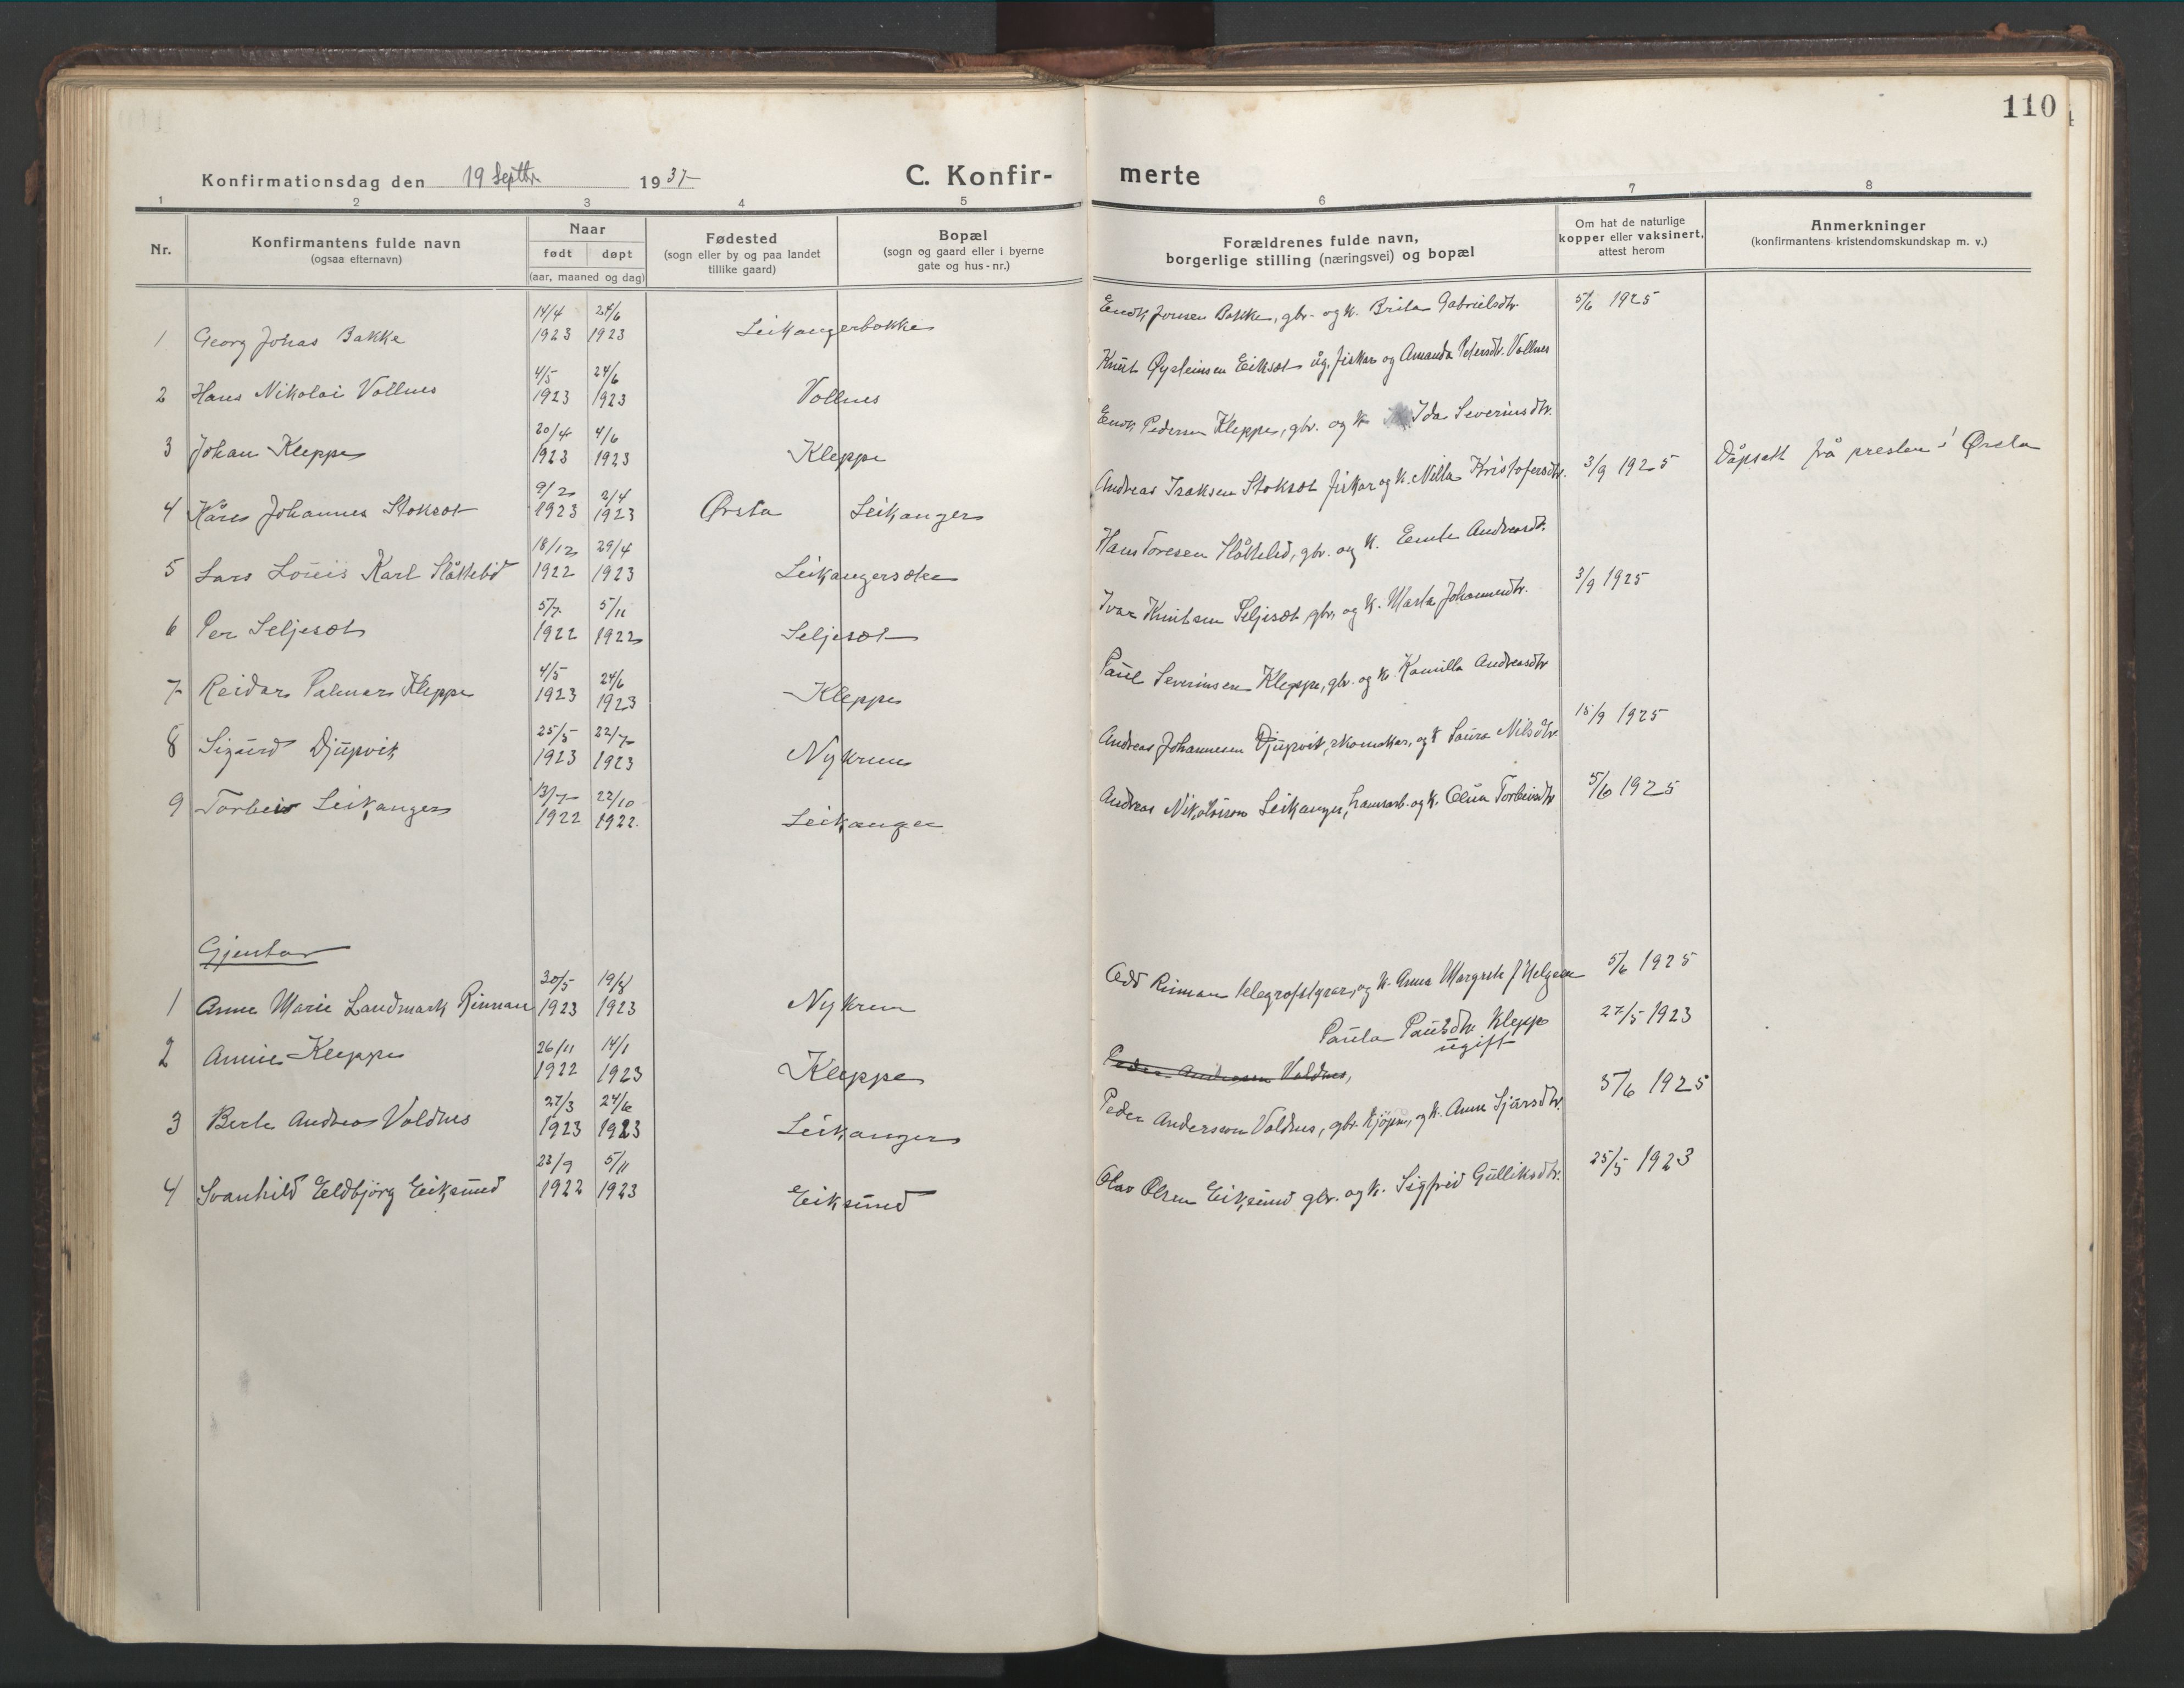 110
Konfirmationsdag den 19 Septbr. 1937
C. Konfir- merte
1 2 3 4 5 6 7 8
Nr.
Konfirmantens fulde navn
(ogsaa efternavn)
Naar
født døpt
(aar, maaned og dag)
Fødested
(sogn eller by og paa landet
tillike gaard)
Bopæl
(sogn og gaard eller i byerne
gate og hus-nr.)
Forældrenes fulde navn,
borgerlige stilling (næringsvei) og bopæl
Om hat de naturlige
kopper eller vaksinert,
attest herom
Anmerkninger
(konfirmantens kristendomskundskap m. v.)
14/4 24/6
1 Georg Johas Bakke 1923 1923 Leikangerbakke Enok Jonsen Bakke, gbr. og k. Brita Gabrielsdtr. 5/6 1925
4/5 24/6
2 Hans Nikolai Vollnes 1923 1923 Vollnes Knut Øysteinsen Eikset ug. fiskar og Amanda Petersdtr. Vollnes
20/4 4/6
3 Johan Kleppe 1923 1923 Kleppe Enok Pedersen Kleppe, gbr. og k. Ida Severinsdtr.
9/2 2/4
4 Kåre Johannes Stokset 1923 1923 Ørsta Leikanger Andreas Isaksen Stokset fiskar og k. Milla Kristofersdtr. 3/9 1925 Dåpsatt frå presten i Ørsta
18/12 29/4
5 Lars Louis Karl Slåttelid 1922 1923 Leikangersæter Hans Toresen Slåttelid, gbr. og k. Emte Andreasdtr.
5/7 5/11
6 Per Seljeset 1922 1922 Seljeset Ivar Knutsen Seljeset gbr. og k. Marta Johannesdtr. 3/9 1925
4/5 24/6
7 Reidar Palmar Kleppe 1923 1923 Kleppe Paul Severinsen Kleppe, gbr. og k. Kamilla Andreasdtr
25/5 22/7
8 Sigurd Djupvik 1923 1923 Nykrun Andreas Johannesen Djupvik, skomakar, og k Laura Nilsdtr. 15/9 1925
13/7 22/10
9 Torleiv Leikanger 1922 1922. Leikanger Andreas Nikolaisen Leikanger, hamnarb. og k. Olina Torleivsdtr 5/6 1925
Gjentor
30/5 19/8
1 Anne Marie Landmark Rinnan 1923 1923 Nykrun Odd Rinnan telegrafstyrar, og k. Anna Margrete J Helgesen 5/6 1925
26/11 14/1
2 Annie Kleppe 1922 1923 Kleppe Paula Paulsdtr. Kleppe ugift 27/5 1923
Peder Andersen Voldnes,
27/3 24/6
3 Berte Andrea Voldnes 1923 1923 Leikanger Peder Andersson Voldnes, gbr. kjøpm., og k. Anne Sjursdtr. 5/6 1925
23/9 5/11
4 Svanhild Eldbjørg Eiksund 1922 1923 Eiksund Olav Olsen Eiksund gbr. og k. Sigfrid Gulliksdtr. 25/5 1923